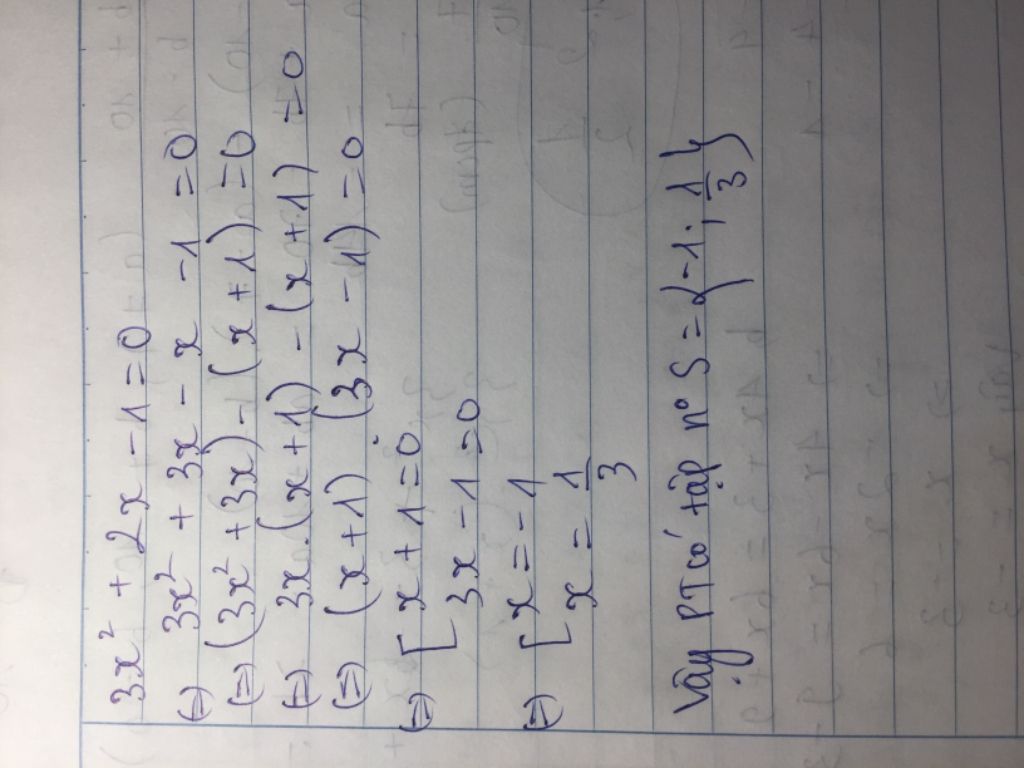 3x² + 2x - 1 = 0
⇔ 3x² + 3x - x - 1 = 0
⇔ (3x² + 3x) - (x + 1) = 0
⇔ 3x.(x + 1) - (x + 1) = 0
⇔ (x + 1) (3x - 1) = 0
⇔ [ x + 1 = 0
3x - 1 = 0
⇔ [ x = -1
x = 1/3
Vậy PT có tập nº S = {-1; 1/3}